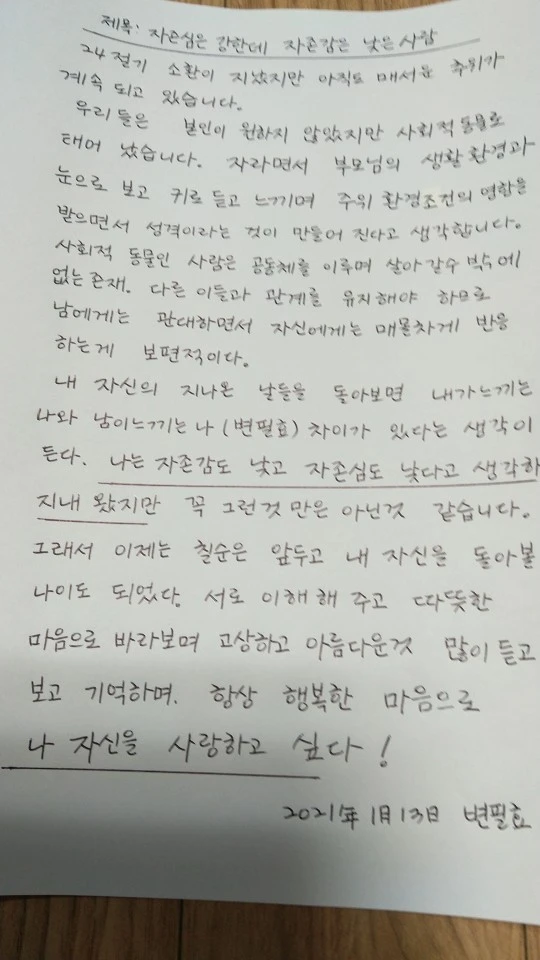 제목: 자존심은 강한데 자존감은 낮은 사람
24절기 소환이 지났지만 아직도 매서운 추위가
계속 되고 있습니다.
우리들은 본인이 원하지 않았지만 사회적동물로
태어 났습니다. 자라면서 부모님의 생활환경과
눈으로 보고 귀로 듣고 느끼며 주위 환경조건의 영향을
받으면서 성격이라는 것이 만들어 진다고 생각합니다.
사회적 동물인 사람은 공동체를 이루며 살아갈수 밖에
없는존재. 다른 이들과 관계를 유지해야 하므로
남에게는 관대하면서 자신에게는 매몰차게 반응
하는게 보편적이다.
내 자신의 지나온 날들을 돌아보면 내가느끼는
나와 남이느끼는나(변필효)차이가 있다는 생각이
든다. 나는자존감도 낮고 자존심도 낮다고 생각하
지내 왔지만 꼭 그런것 만은 아닌것 같습니다.
그래서 이제는 칠순은 앞두고 내 자신을 돌아볼
나이도 되었다. 서로 이해해 주고 따뜻한
마음으로 바라보며 고상하고 아름다운것 많이듣고
보고 기억하며. 항상 행복한 마음으로
나 자신을 사랑하고 싶다!
2021年 1月 13日 변필효